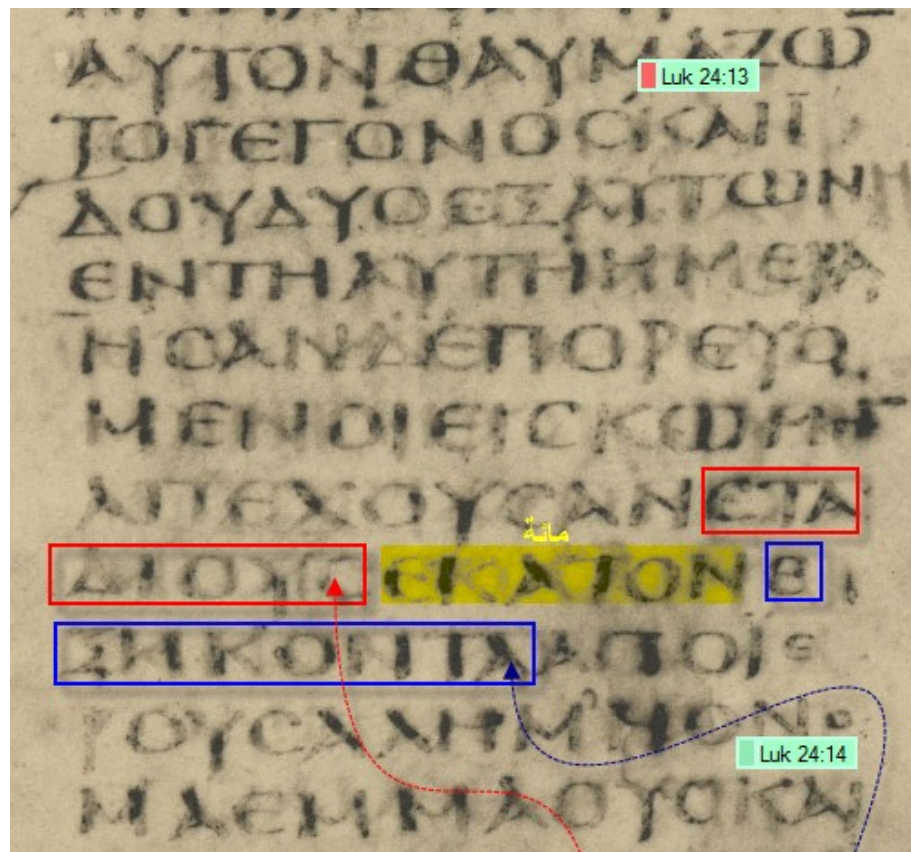 ΑΥΤΟΝΘΑΥΜΑΖΩ
Luk 24:13
ΤΟΓΕΓΟΝΟϹΚΑΙΪ
ΔΟΥΔΥΟΕΞΑΥΤΩΝΗ
ΕΝΤΗΑΥΤΗΗΜΕΡΑ
ΗϹΑΝΔΕΠΟΡΕΥΟ
ΜΕΝΟΙΕΙϹΚΩΜΗ
ΑΠΕΧΟΥϹΑΝϹΤΑ
مائة
ΔΙΟΥϹ ΕΚΑΤΟΝ Ε
ΞΗΚΟΝΤΑΑΠΟΙΕ
ΡΟΥϹΑΛΗΜ
Luk 24:14
ΜΑΕΜΜΑΟΥϹΚΑΙ